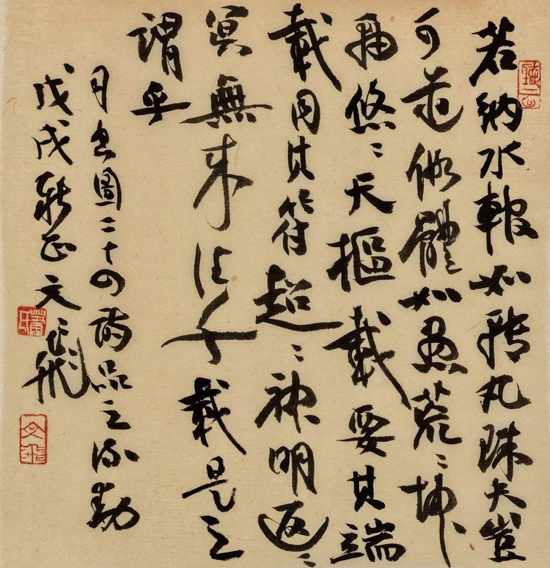 若納水輨如轉丸珠夫豈
可道假體如愚荒〻坤
軸悠〻天樞載要其端
載同其符超〻神明返〻
冥無來往千載是之
謂乎
司空圖二十四詩品之流動
戊戌新正文飛